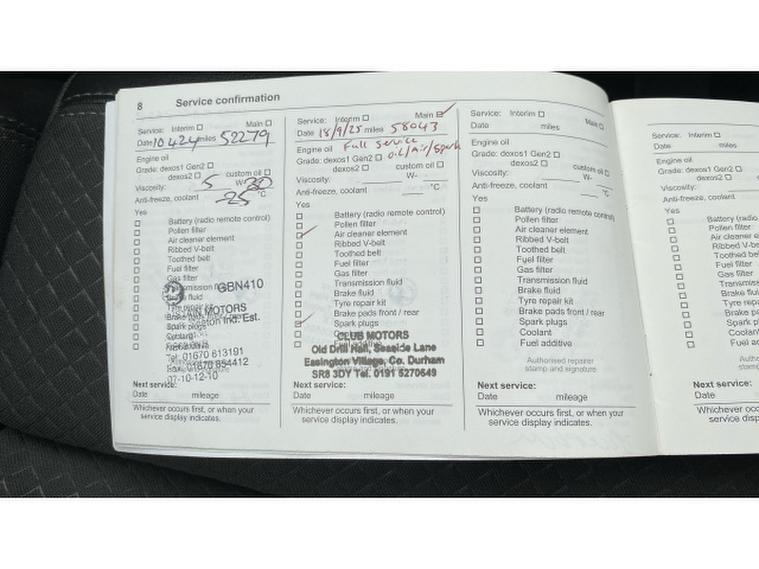 8 Service confirmation
Service: Interim Main
Date 10 4 24 miles 52279
Engine oil
Grade: dexos1 Gen2
dexos2 custom oil
Viscosity: 5 W- 30
Anti-freeze, coolant -25 °C
Yes
Battery (radio remote control)
Pollen filter
Air cleaner element
Ribbed V-belt
Toothed belt
Fuel filter
Gas filter
GBN410
Transmission fluid
Brake fluid
Tyre repair kit
MOTORS
Brake pads front / rear
Ind. Est.
Spark plugs
Coolant
Tel: 01670 813191
Fax: 01670 854412
07-10-12-10
Next service:
Date mileage
Whichever occurs first, or when your
service display indicates.
Service: Interim Main
Date 18/9/25 miles 58043
Engine oil Full Service
Grade: dexos1 Gen2 oil/Air/Spark
dexos2 custom oil
Viscosity: W-
Anti-freeze, coolant °C
Yes
Battery (radio remote control)
Pollen filter
Air cleaner element
Ribbed V-belt
Toothed belt
Fuel filter
Gas filter
Transmission fluid
Brake fluid
Tyre repair kit
Brake pads front / rear
Spark plugs
CLUB MOTORS
Old Drill Hall, Seaside Lane
Easington Village, Co. Durham
SR8 3DY Tel. 0191 5270649
Next service:
Date mileage
Whichever occurs first, or when your
service display indicates.
Service: Interim Main
Date miles
Engine oil
Grade: dexos1 Gen2
dexos2 custom oil
Viscosity: W-
Anti-freeze, coolant °C
Yes
Battery (radio remote control)
Pollen filter
Air cleaner element
Ribbed V-belt
Toothed belt
Fuel filter
Gas filter
Transmission fluid
Brake fluid
Tyre repair kit
Brake pads front / rear
Spark plugs
Coolant
Fuel additive
Authorised repairer
stamp and signature
Next service:
Date mileage
Whichever occurs first, or when your
service display indicates.
Service: Interim
Date miles
Engine oil
Grade: dexos1 Gen2
dexos2
Viscosity:
Anti-freeze, coolant
Yes
Battery (radio
Pollen filter
Air cleaner e
Ribbed V-be
Toothed be
Fuel filter
Gas filter
Transmiss
Brake fluid
Tyre repa
Brake pa
Spark plu
Coolant
Fuel ad
Auth
stam
Next service:
Date mi
Whichever occurs firs
service display ind